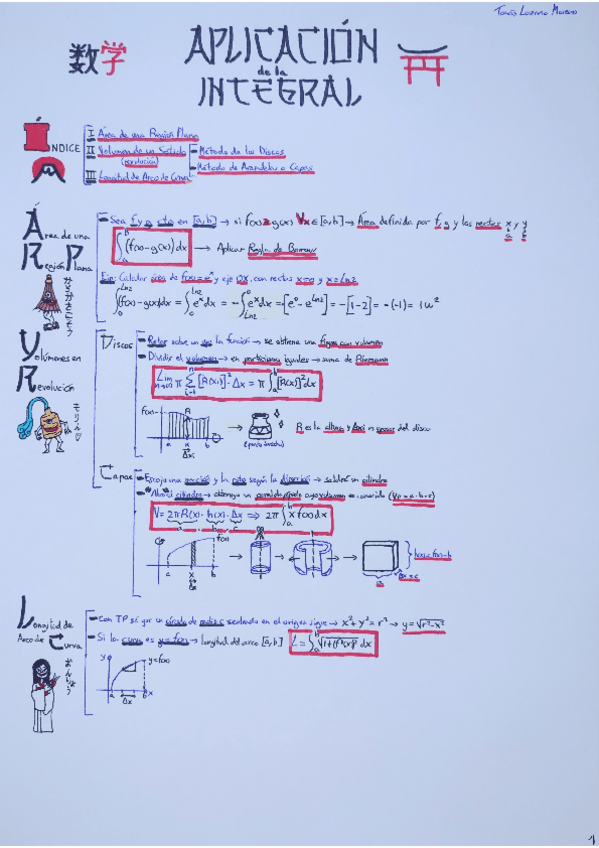 Tomás Lozano Moreno
数学
APLICACIÓN
de la
INTEGRAL
ÍNDICE
I Área de una Región Plana
II Volumen de un Sólido (revolución)
Método de los Discos
Método de Arandelas o Capas
III Longitud de Arco de Curva
Área de una Región Plana
Sea f y g ctns en [a,b] → si f(x) ≥ g(x) ∀x ∈ [a,b] → Área definida por f, g y las rectas x=a y
∫ₐᵇ (f(x)-g(x)) dx → Aplicar Regla de Barrow
Ejp: Calcular área de f(x)=eˣ y eje OX, con rectas x=0 y x=Ln2
∫₀^Ln2 (f(x)-g(x))dx = ∫₀^Ln2 eˣdx = -∫_Ln2^0 eˣdx = -[e⁰-e^Ln2] = -[1-2] = -(-1) = 1u²
Volúmenes en Revolución
Discos
Rotar sobre un eje la función → se obtiene una figura con volumen
Dividir el volumen → en particiones iguales → suma de Riemann
Lim n→∞ π Σ i=1 n [R(xi)]²·Δx = π ∫ₐᵇ [R(x)]² dx
f(x)
R
a x b
Δx
R es la altura y Δx el grosor del disco
Capas
Escojo una porción y la roto según la dirección → saldrá un cilindro
"Abrir" cilindro → obtengo un paralelepípedo cuyo volumen es conocido (Vp = a·b·c)
V = 2πR(x)·h(x)·Δx ⇒ 2π ∫ₐᵇ x f(x) dx
a b c
f(x)
a x b
Δx
h(x)=f(x)=b
a
Δx=c
Longitud de Arco de Curva
Con TP sí que un círculo de radio r centrado en el origen sigue → x²+y²=r² → y=√r²-x²
Si la curva es y=f(x) → longitud del arco [a,b] L = ∫ₐᵇ √1+(f'(x))² dx
y
y=f(x)
a b x
Δx
1